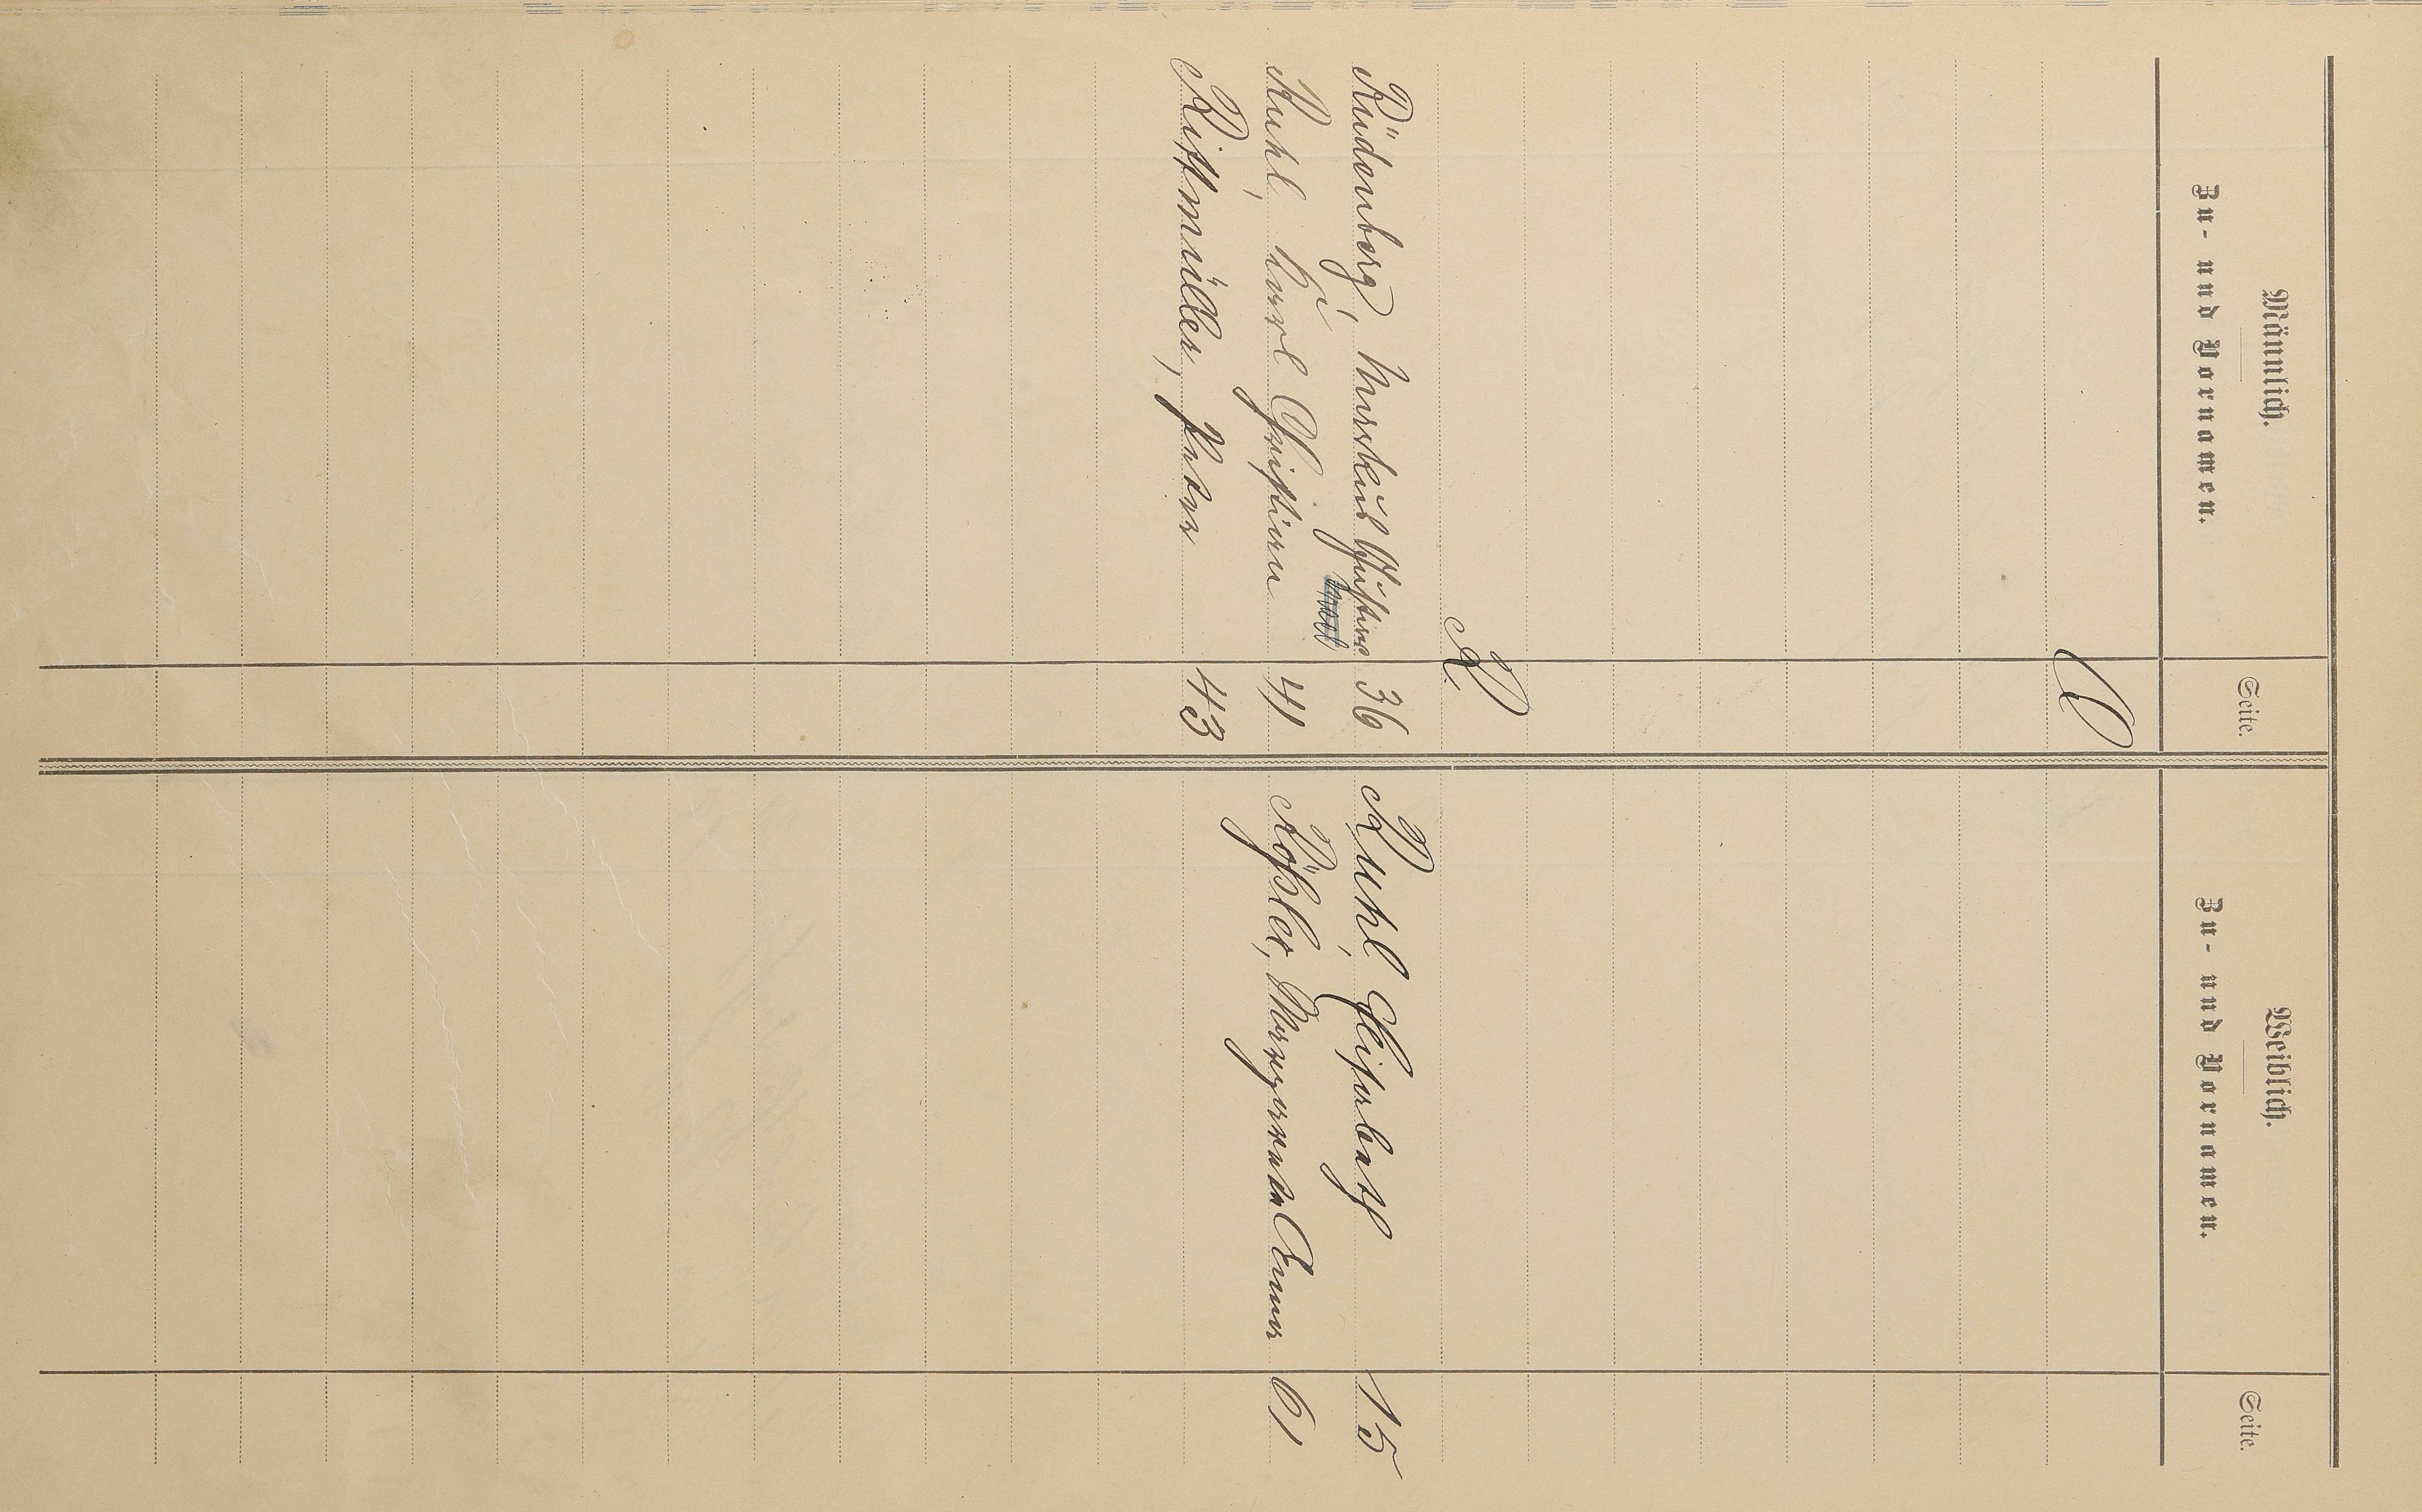 Männlich.
Zu- und Vornamen.
Seite.
Weiblich.
Zu- und Vornamen.
Seite.
R.
Rüdenberg, Christian 36
Ruhl, Elisabeth 15
Ruhl, Karl Christian 41
Rößler, Margaretha Anna 61
Rißmüller, Peter 43